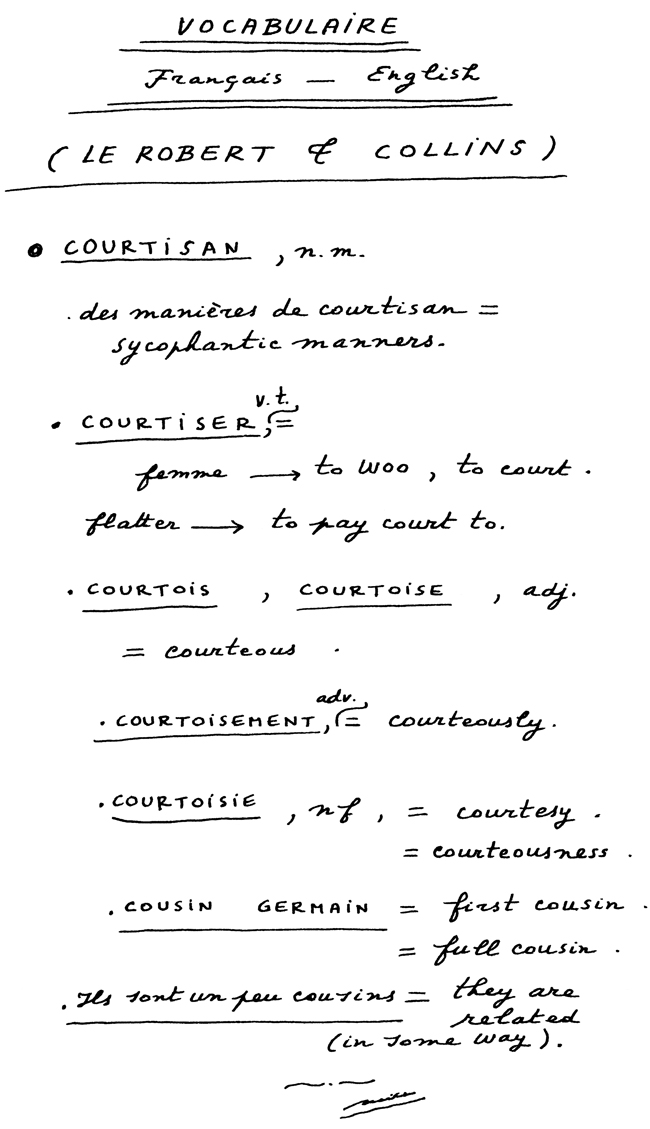 VOCABULAIRE
Français — English
( LE ROBERT & COLLINS )
• COURTISAN , n.m.
. des manières de courtisan =
sycophantic manners.
• COURTISER, v.t. =
femme → to woo , to court .
flatter → to pay court to.
. COURTOIS , COURTOISE , adj.
= courteous .
. COURTOISEMENT, adv. = courteously.
. COURTOISIE , nf , = courtesy .
= courteousness .
. COUSIN GERMAIN = first cousin .
= full cousin .
. Ils sont un peu cousins = they are
related
(in some way ).